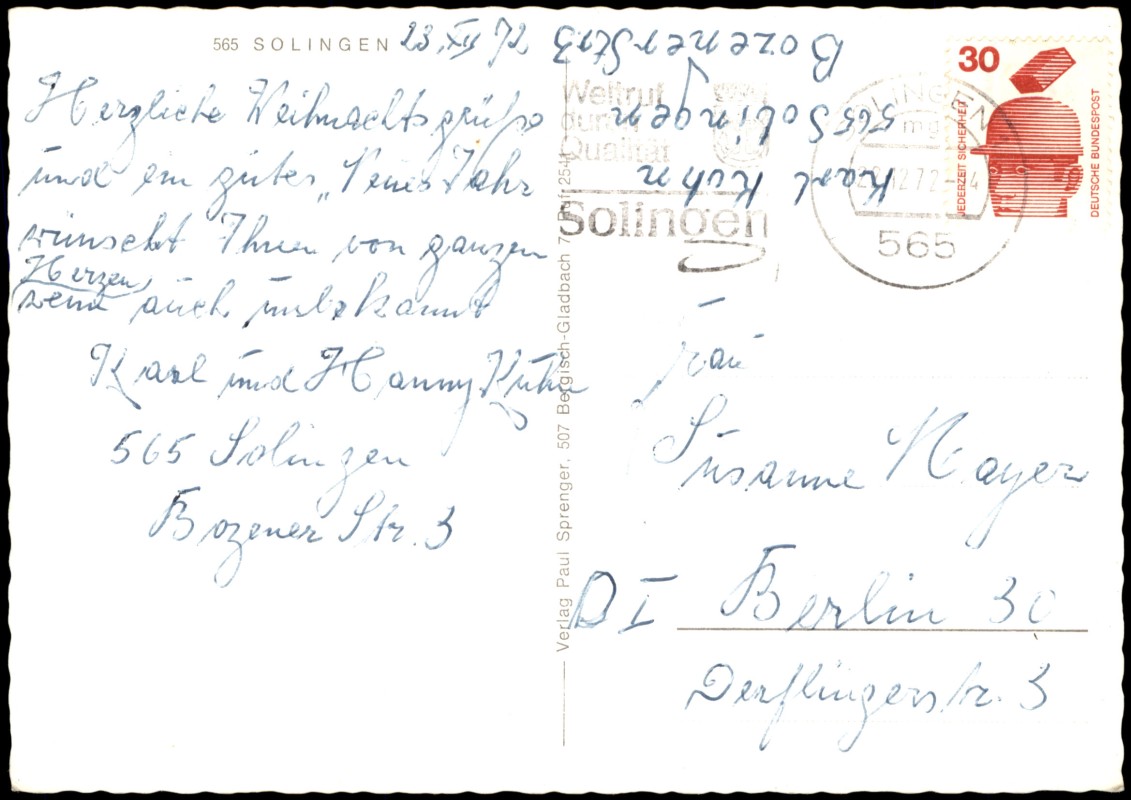 565 SOLINGEN 23.XII 72
Herzliche Weihnachtsgrüße
und ein gutes „Neues Jahr
wünscht Ihnen von ganzen
Herzen,
wenn auch unbekannt
Karl und Hanny Kühn
565 Solingen
Bozener Str. 3
Verlag Paul Sprenger, 507 Bergisch-Gladbach
Karl Kühn
565 Solingen
Bozener Str 3
Weltruf
durch
Qualität
Solingen
SOLINGEN
mg
12.72
565
30
JEDERZEIT SICHERHEIT
DEUTSCHE BUNDESPOST
Frau
Susanne Mayer
Berlin 30
Derflingerstr. 3